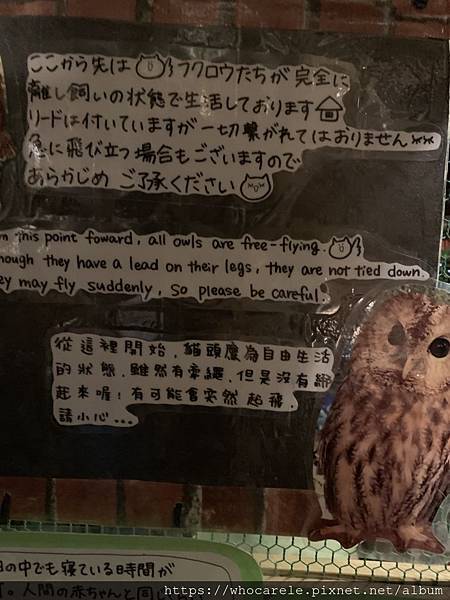 ここから先は フクロウたちが 完全に
離し飼いの状態で生活しております
リードは付いていますが一切繋がれてはおりません
急に飛び立つ場合もございますので
あらかじめ ご了承ください
this point foward, all owls are free-flying.
they have a lead on their legs, they are not tied down.
may fly suddenly, So please be careful.
從這裡開始,貓頭鷹為自由生活
的狀態,雖然有牽繩,但是沒有綁
起來喔!有可能會突然起飛,
請小心...
の中でも寝ている時間が
。人間の赤ちゃんと同
https://whocarele.pixnet.net/album